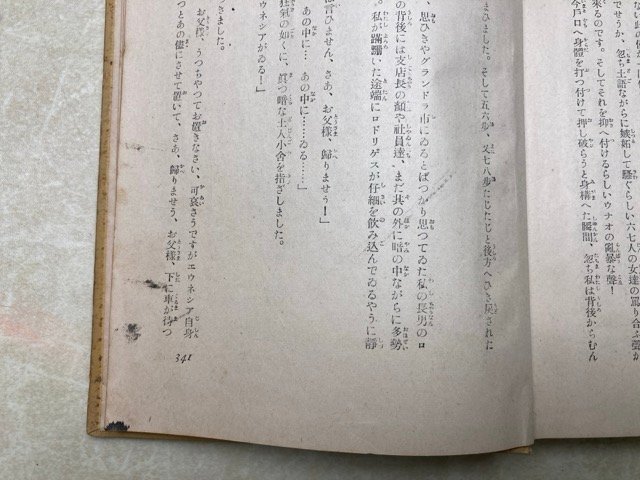 来るのです。そしてそれを抑へ付けるらしいウナオの亂暴な聲！
でせうか、忽ち土語ながらに嫉妬して騷ぐらしい六七人の女達の罵り合ふ聲が
今戸口へ身體を打つ付けて押し破らうと身構へた瞬間、忽ち私は背後からむん
まひました。そして五六歩、又七八歩たじたじと後方へひき戻された
、思ひきやグランドラ市にゐるとばつかり思つてゐた私の長男のロ
の背後には支店長の顏や社員達、まだ其の外に暗の中ながらに多勢
。私が蹣跚いた途端にロドリゲスが仔細を飲み込んでゐるやうに靜
は言ひません、さあ、お父樣、歸りませう！」
、あの中に…あの中に……ゐる……」
エウネシアがゐる！」
狂氣の如くに、眞つ暗な土人小舍を指ざしました。
きました。
お父樣、うつちやつてお置きなさい、可哀さうですがエウネシア自身
つとあの儘にさせて置いて、さあ、歸りませう、お父樣、下に車が待つ
348